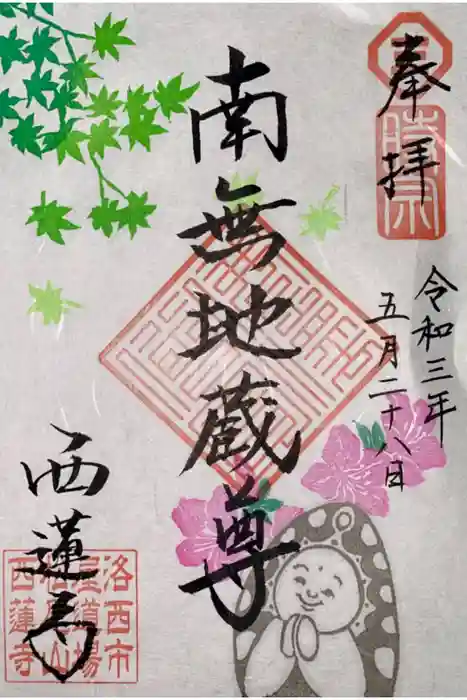 奉拝
時宗
令和三年
五月二十八日
南無地蔵尊
西蓮寺
洛西市
屋道場
西蓮寺